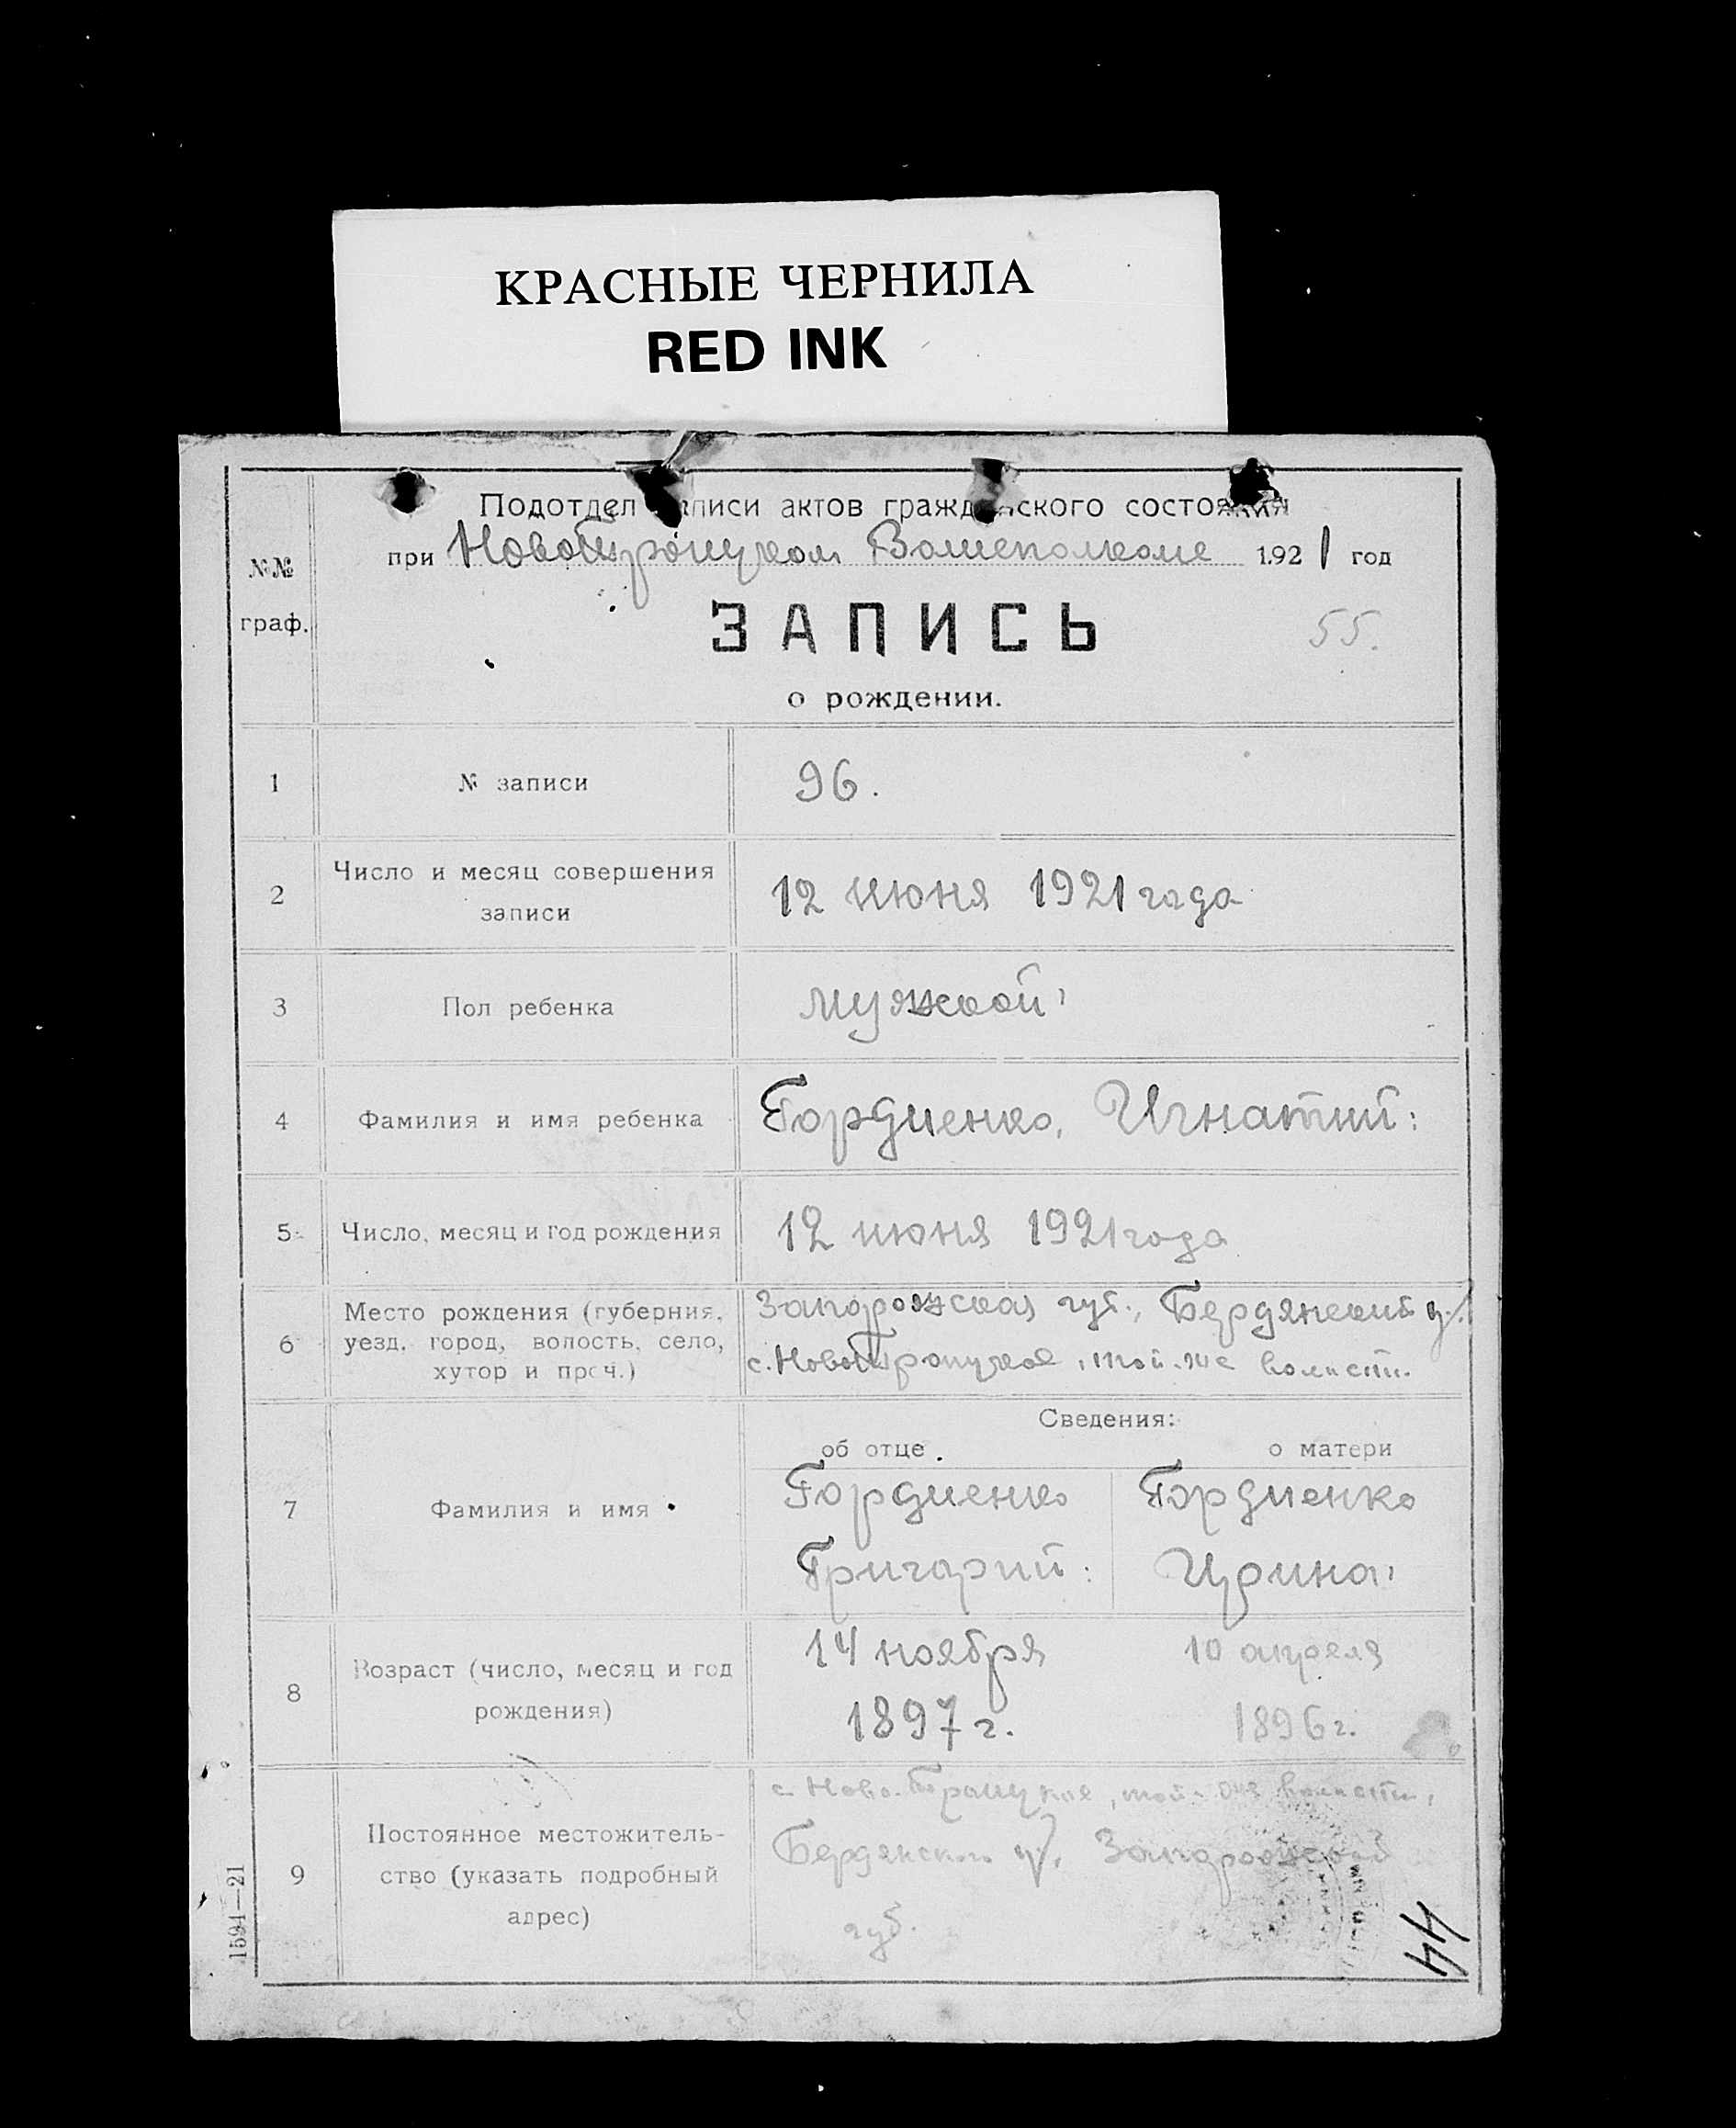 КРАСНЫЕ ЧЕРНИЛА
RED INK
Подотдел записи актов гражданского состояния
при Новотроицком Волисполкоме 1921 год
№№
граф.
ЗАПИСЬ
55.
о рождении.
1 № записи 96.
2 Число и месяц совершения
записи
12 июня 1921 года
3 Пол ребенка мужской
4 Фамилия и имя ребенка Гордиенко, Игнатий:
5 Число, месяц и год рождения 12 июня 1921 года
6 Место рождения (губерния,
уезд, город, волость, село,
хутор и проч.)
Запорожская губ., Бердянский у.
с. Новотроицкое, той-же волости.
Сведения:
об отце о матери
7 Фамилия и имя
Гордиенко Гордиенко
Григорий: Ирина
8 Возраст (число, месяц и год
рождения)
14 ноября 10 апреля
1897 г. 1896 г.
9 Постоянное местожитель-
ство (указать подробный
адрес)
с. Ново-Троицкое, той-же волости,
Бердянского у., Запорожской
губ.
44
1591—21